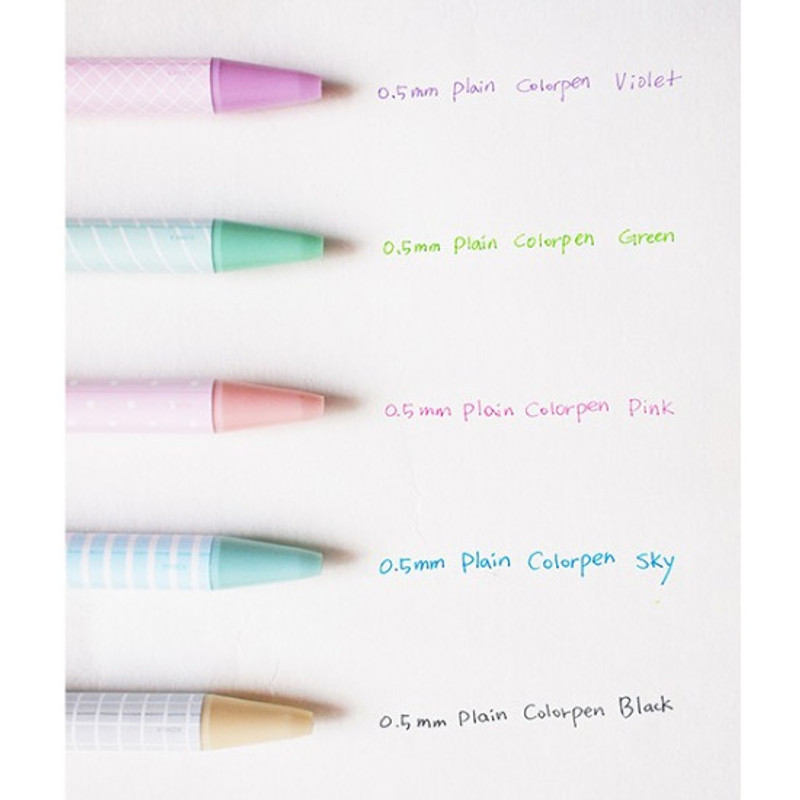 0.5mm Plain Colorpen Violet
0.5mm Plain Colorpen Green
0.5mm Plain Colorpen Pink
0.5mm Plain Colorpen Sky
0.5mm Plain Colorpen Black